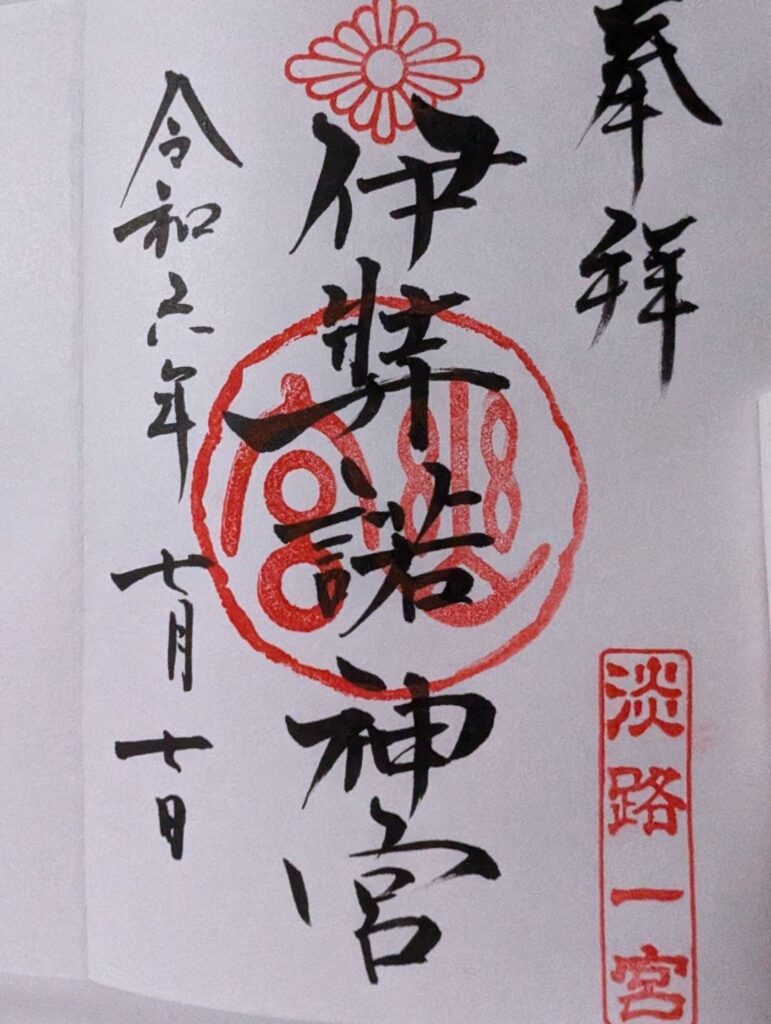 奉拝
淡路一宮
伊弉諾神宮
令和六年七月七日